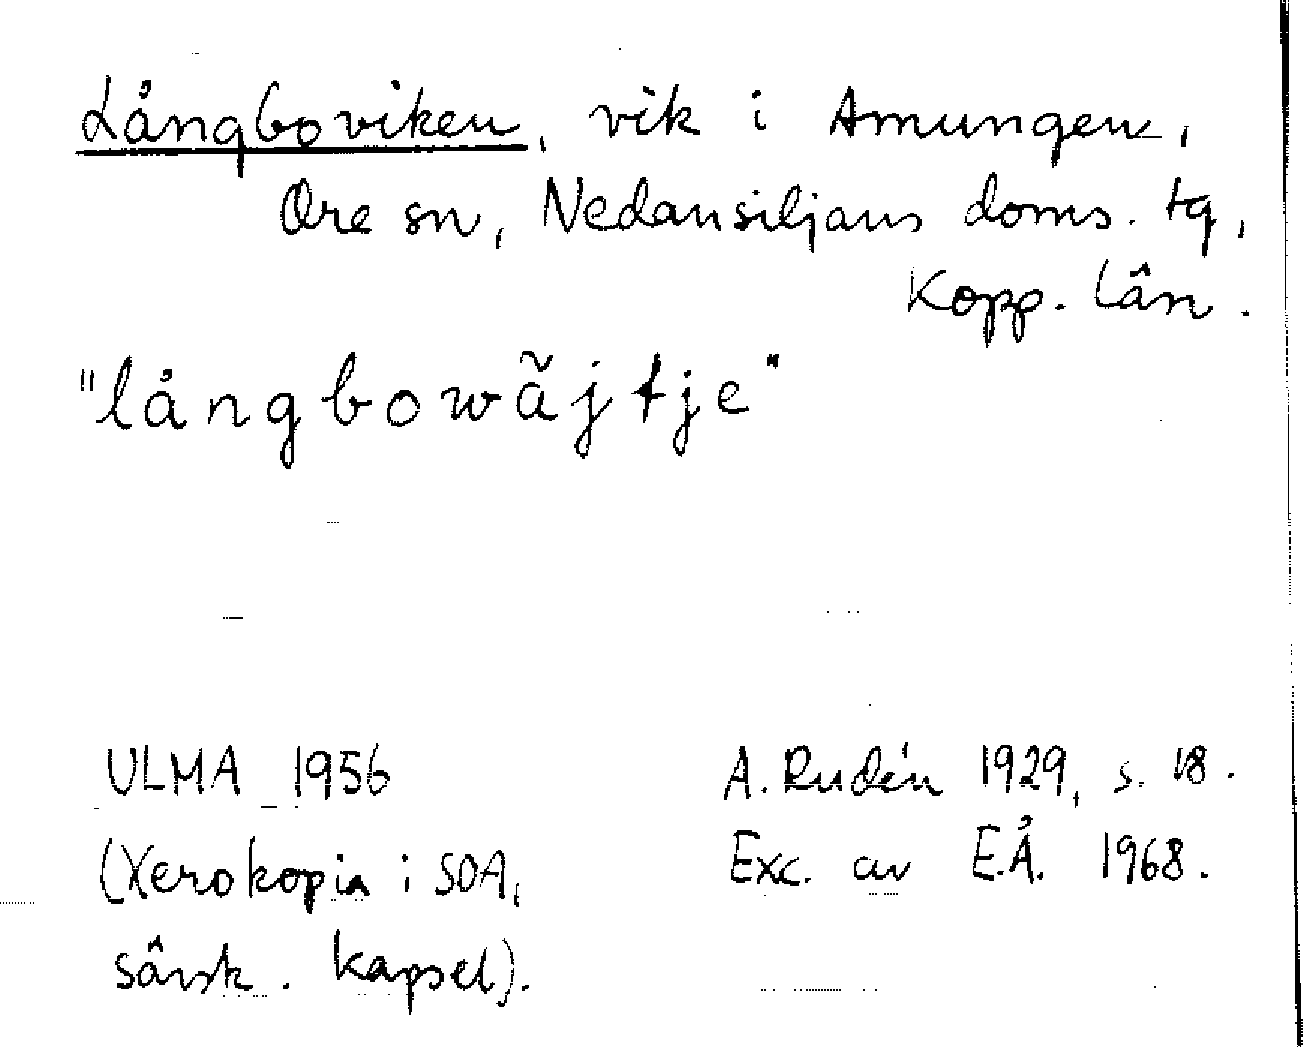 Långboviken, vik i Amungen,
Ore sn, Nedansiljans doms. tg,
Kopp. län.
"långbowãjtje"
ULMA 1956
(Xerokopia i SOA,
särsk. kapsel).
A. Rudén 1929, s. 18.
Exc. av E.Å. 1968.